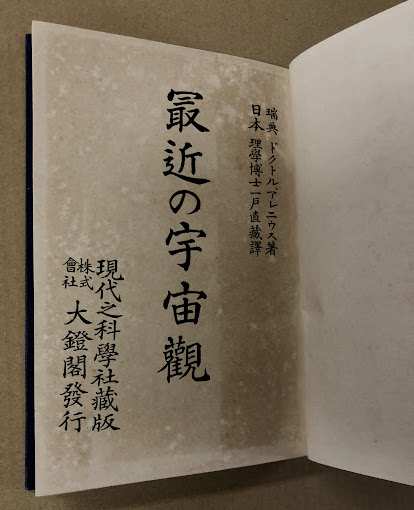 瑞典 ドクトル、アレニウス著
日本 理學博士一戸直藏譯
最近の宇宙觀
現代之科學社藏版
株式會社 大鐙閣發行